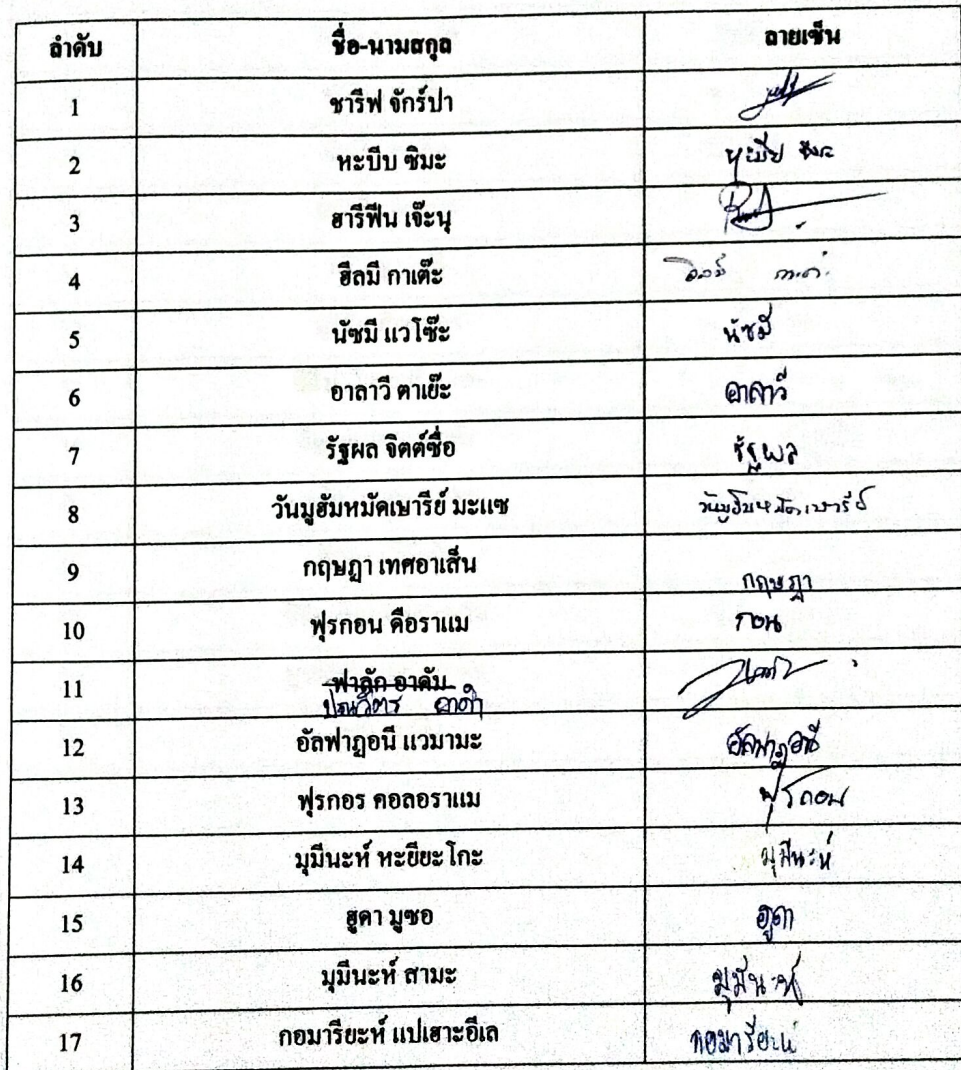 ลำดับ ชื่อ-นามสกุล ลายเซ็น
1 ซารีฟ จักร์ปา
2 หะบีบ ซิมะ หะบีบ ซิมะ
3 ฮารีฟีน เจ๊ะนุ
4 ฮีลมี กาเต๊ะ
5 นัซมี แวโซ๊ะ นัซมี
6 อาลาวี ตาเย๊ะ อาลาวี
7 รัฐผล จิตต์ซื่อ รัฐผล
8 วันมูฮัมหมัดเษารีย์ มะแซ
9 กฤษฎา เทศอาเส็น กฤษฎา
10 ฟุรกอน ดือราแม กอน
11 ฟาลัก อาดัม
ปณวิตร
12 อัลฟาฎอนี แวมามะ อัลฟาฎอนี
13 ฟุรกอร คอลอราแม ฟุรกอน
14 มุมีนะห์ หะยียะโกะ มุมีนะห์
15 ฮูดา มูซอ ฮูดา
16 มุมีนะห์ สามะ มุมีนะห์
17 กอมารียะห์ แปเฮาะอีเล กอมารียะห์